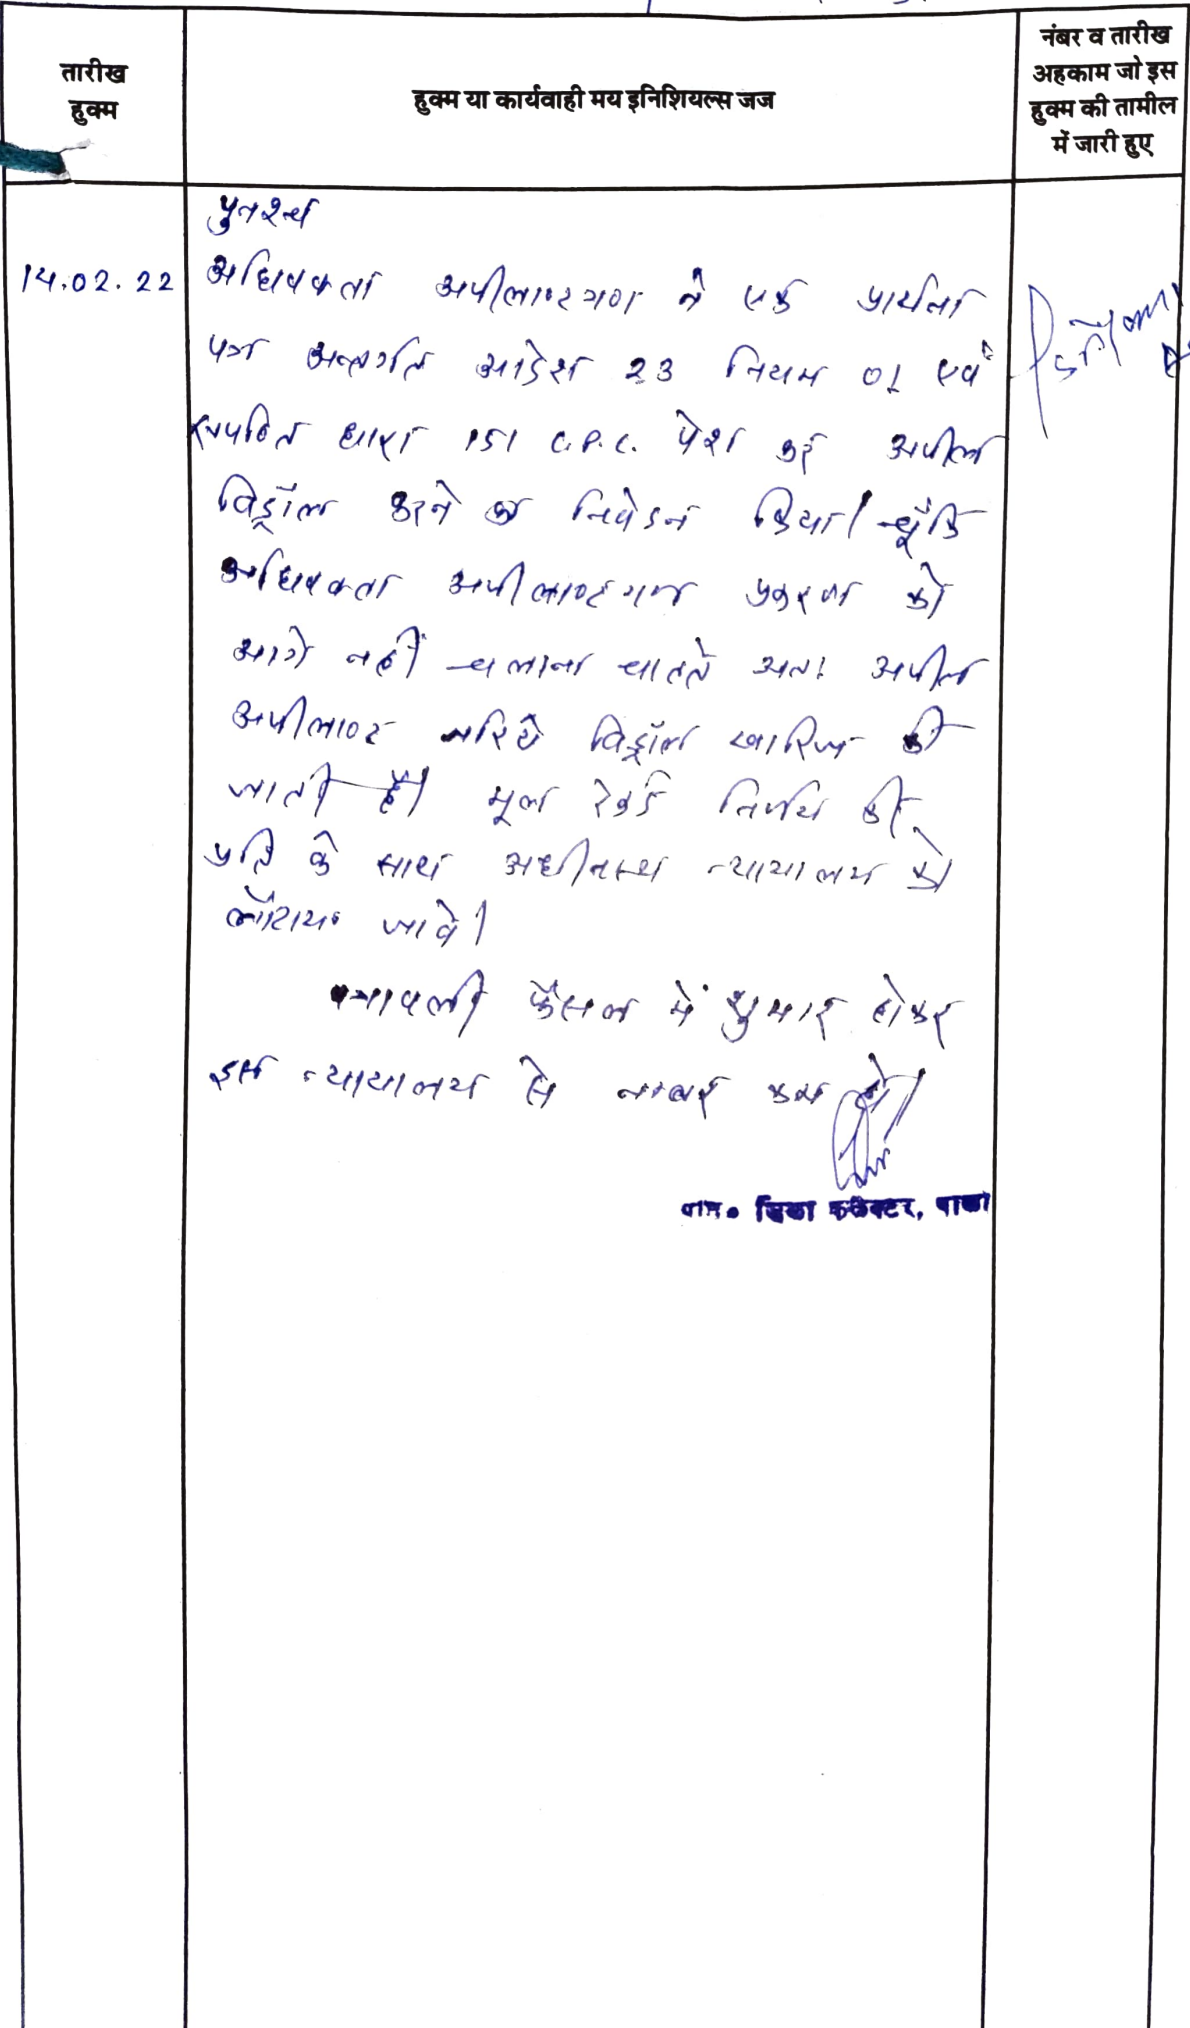 तारीख
हुक्म
हुक्म या कार्यवाही मय इनिशियल्स जज
नंबर व तारीख
अहकाम जो इस
हुक्म की तामील
में जारी हुए
पुनश्च
14.02.22
अधिवक्ता अपीलाण्टगण ने एक प्रार्थना
पत्र अन्तर्गत आदेश 23 नियम 01 एवं
सपठित धारा 151 C.P.C. पेश कर अपील
विड्रॉल करने का निवेदन किया। चूँकि
अधिवक्ता अपीलाण्टगण प्रकरण को
आगे नहीं चलाना चाहते अतः अपील
अपीलाण्ट जरिये विड्रॉल खारिज की
जाती है। मूल रेकर्ड निर्णय की
प्रति के साथ अधीनस्थ न्यायालय को
लौटाया जावे।
पत्रावली फैसल में शुमार होकर
इस न्यायालय से नम्बर कम हो।
जिला कलेक्टर, पाली